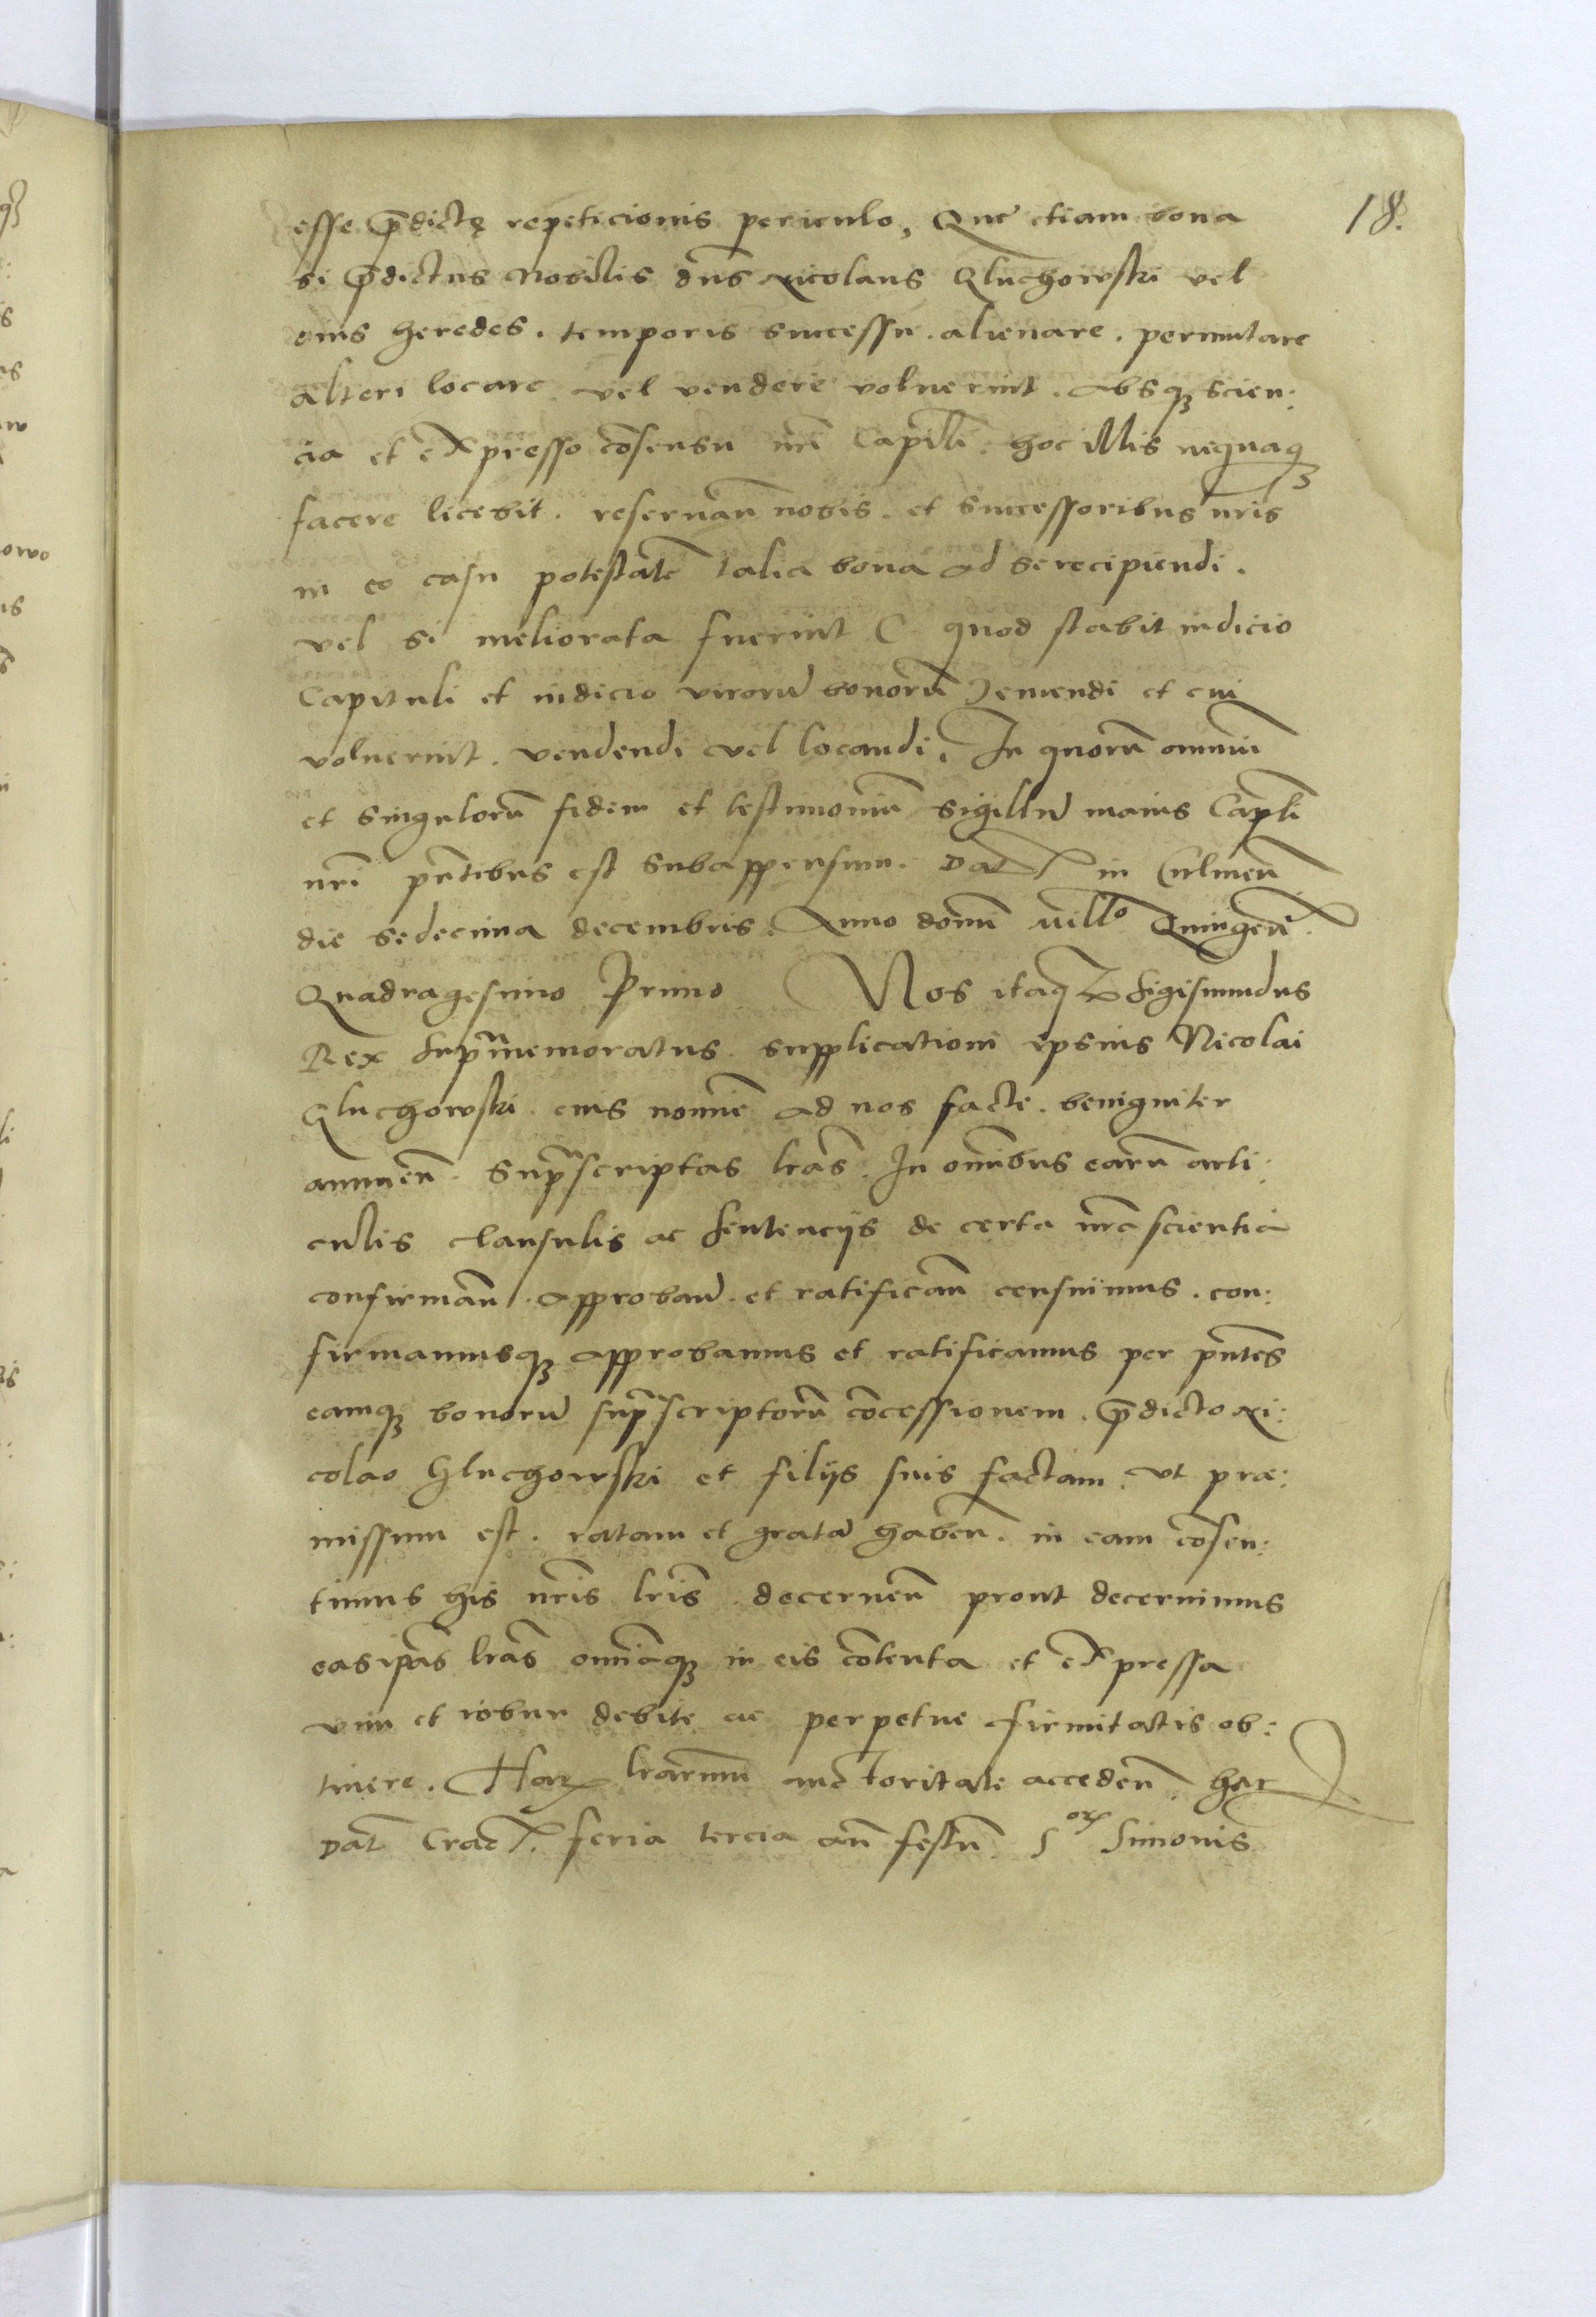 18.
esse p̄dictę repeticionis periculo, Que etiam bona
si p̄dictus Nobilis dn̄s Nicolaus Gluchowski vel
eius heredes. temporis successu. alienare. permutare
alteri locare vel vendere voluerint. absqꝫ scien:
cia et expresso cōsensu nr̄i Capl̄i. hoc illis nequaqꝫ
facere licebit. reseruan̄ nobis. et successoribus nr̄is
in eo casu potestatē talia bona ad se recipiendi.
vel si meliorata fuerint ( quod stabit iudicio
Capituli et iudicio virorū bonorū) emendi et cui
voluerint. vendendi vel locandi. In quorū omniū
et singulorū fidem et testimoniū sigillū maius Capl̄i
nr̄i pn̄tibus est subappensum. Dat in Culmen̄
die sedecima decembris. Anno domī mill̄o Quingen̄.
Quadragesimo Primo Nos itaqꝫ Sigismundus
Rex supramemoratus supplicationi ipsius Nicolai
Gluchowski. eius nomīe ad nos facte. benigniter
annuen̄. Suprascriptas lrās. In omībus earū arti:
culis clausulis ac sentencijs de certa nrā scientia
confirman̄. approban̄. et ratifican̄ censuimus. con:
firmamusqꝫ approbamus et ratificamus per pn̄tes
eamqꝫ bonorū suprascriptorū cōcessionem. p̄dicto Ni:
colao Gluchowski et filijs suis factam. vt præ:
missum est. ratam et gratā haben̄. in eam cōsen:
timus his nr̄is lr̄is decernen̄ prout decernimus
eas ip̄as lrās omīaqꝫ in eis cōtenta et expressa
vim et robur debite ac perpetue firmitatis ob:
tinere. Harꝫ lrārum auctoritate acceden̄. har
Dat̄ Crac. feria tercia an̄ festū S orꝫ Simonis